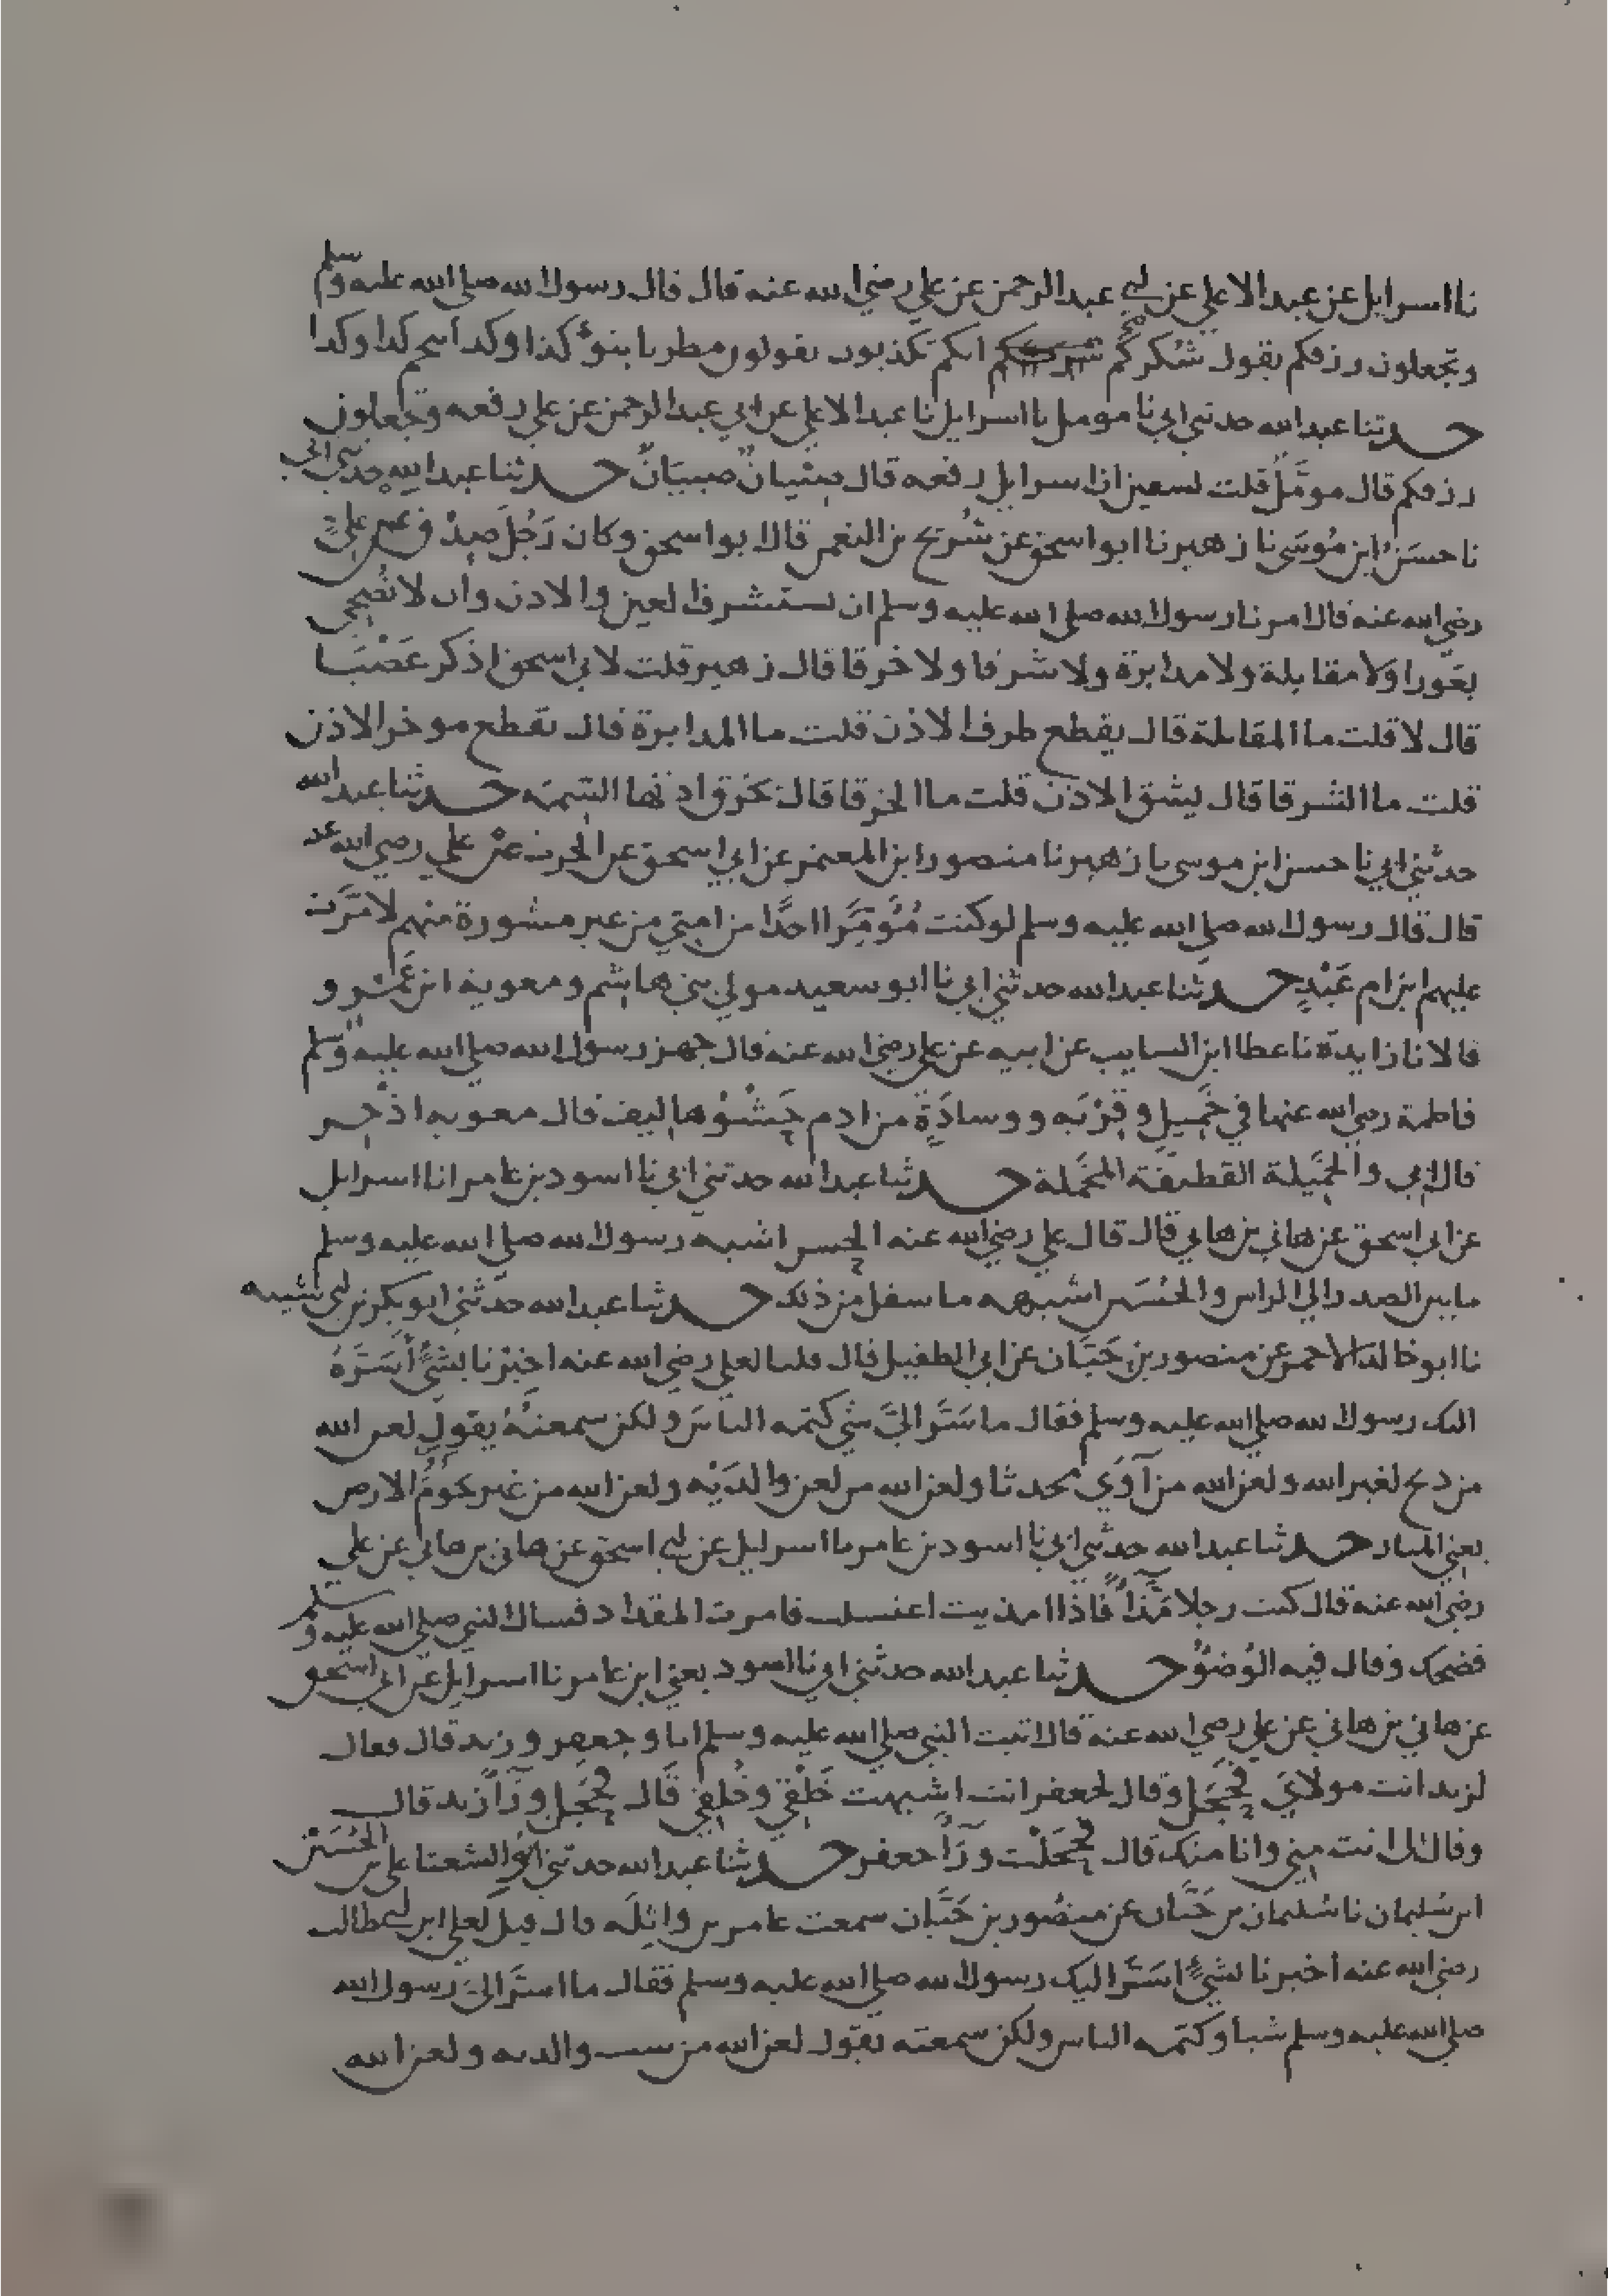 نا اسرايل عن عبد الاعلي عن ابي عبد الرحمن عن علي رضي الله عنه قال قال رسول الله صلي الله عليه وسلم
وتجعلون رزقكم يقول شكركم انكم تكذبون يقولون مطرنا بنوء كذا وكذا بنجم كذا وكذا
حدثنا عبد الله حدثني ابي نا مومل نا اسرايل نا عبد الاعلي عن ابي عبد الرحمن عن علي رفعه وتجعلون
رزقكم قال مومل قلت لسفين ان اسرايل رفعه قال صبيان صبيان حدثنا عبد الله حدثني ابي
نا حسن ابن موسى نا زهير نا ابو اسحق عن شريح بن النعمن قال ابو اسحق وكان رجل صدق عن علي
رضي الله عنه قال امرنا رسول الله صلي الله عليه وسلم ان نستشرف العين والاذن وان لا نضحي
بعورا ولا مقابلة ولا مدابرة ولا شرقا ولا خرقا قال زهير قلت لابي اسحق اذكر عضبا
قال لا قلت ما المقابلة قال يقطع طرف الاذن قلت ما المدابرة قال يقطع موخر الاذن
قلت ما الشرقا قال يشق الاذن قلت ما الخرقا قال تخرق اذنها السمة حدثنا عبد الله
حدثني ابي نا حسن ابن موسي نا زهير نا منصور ابن المعتمر عن ابي اسحق عن الحرث عن علي رضي الله عنه
قال قال رسول الله صلي الله عليه وسلم لو كنت مؤمرا احدا من امتي من غير مشورة منهم لامرت
عليهم ابن ام عبد حدثنا عبد الله حدثني ابي نا ابو سعيد مولي بني هاشم ومعوية ابن عمرو
قالا نا زايدة نا عطا ابن السايب عن ابيه عن علي رضي الله عنه قال جهز رسول الله صلي الله عليه وسلم
فاطمة رضي الله عنها في خميل وقربه ووسادة من ادم حشوها ليف قال معويه اذخر
قال ابي والخميلة القطيفة المخملة حدثنا عبد الله حدثني ابي نا اسود بن عامر انا اسرايل
عن ابي اسحق عن هاني بن هاني قال قال علي رضي الله عنه الحسن اشبه رسول الله صلي الله عليه وسلم
ما بين الصدر الي الراس والحسين اشبهه ما سفل من ذلك حدثنا عبد الله حدثني ابو بكر بن ابي شيبه
نا ابو خالد الاحمر عن منصور بن حيان عن ابي الطفيل قال قلنا لعلي رضي الله عنه اخبرنا بشيء أسره
اليك رسول الله صلي الله عليه وسلم فقال ما أسر اليّ شي كتمه الناس ولكن سمعته يقول لعن الله
من ذبح لغير الله ولعن الله من آوى محدثا ولعن الله من لعن والديه ولعن الله من غير تخوم الارض
يعني المنار حدثنا عبد الله حدثني ابي نا اسود بن عامر نا اسرايل عن ابي اسحق عن هاني بن هاني عن علي
رضي الله عنه قال كنت رجلا مذاء فاذا امذيت اغتسلت فامرت المقداد فسال النبي صلي الله عليه وسلم
فضحك وقال فيه الوضوء حدثنا عبد الله حدثني ابي نا اسود يعني ابن عامر نا اسرايل عن ابي اسحق
عن هاني بن هاني عن علي رضي الله عنه قال اتيت النبي صلي الله عليه وسلم انا وجعفر وزيد قال فقال
لزيد انت مولاي فحجل وقال لجعفر انت اشبهت خلقي وخلقي قال فحجل ورآ زيد قال
وقال لي انت مني وانا منك قال فحجلت ورآ جعفر حدثنا عبد الله حدثني ابو الشعثا علي بن الحسن
ابن سليمان نا سليمان بن حيان عن منصور بن حيان سمعت عامر بن واثله قال قيل لعلي ابن ابي طالب
رضي الله عنه اخبرنا بشيء اسر اليك رسول الله صلي الله عليه وسلم فقال ما اسر الي رسول الله
صلي الله عليه وسلم شيا وكتمه الناس ولكن سمعته يقول لعن الله من سب والديه ولعن الله